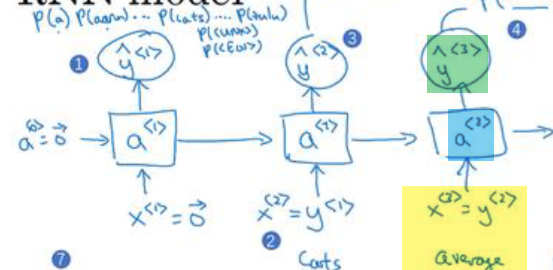 RNN model
P(a) P(aaron) ... P(cats) .... P(zulu)
P(<UNK>)
P(<EOS>)
1 ŷ<1> ŷ<2> 3 ŷ<3> 4
a<0>=0⃗ a<1> a<2> a<3>
x<1>=0⃗ x<2>=y<1> x<3>=y<2>
2
7 Cats average